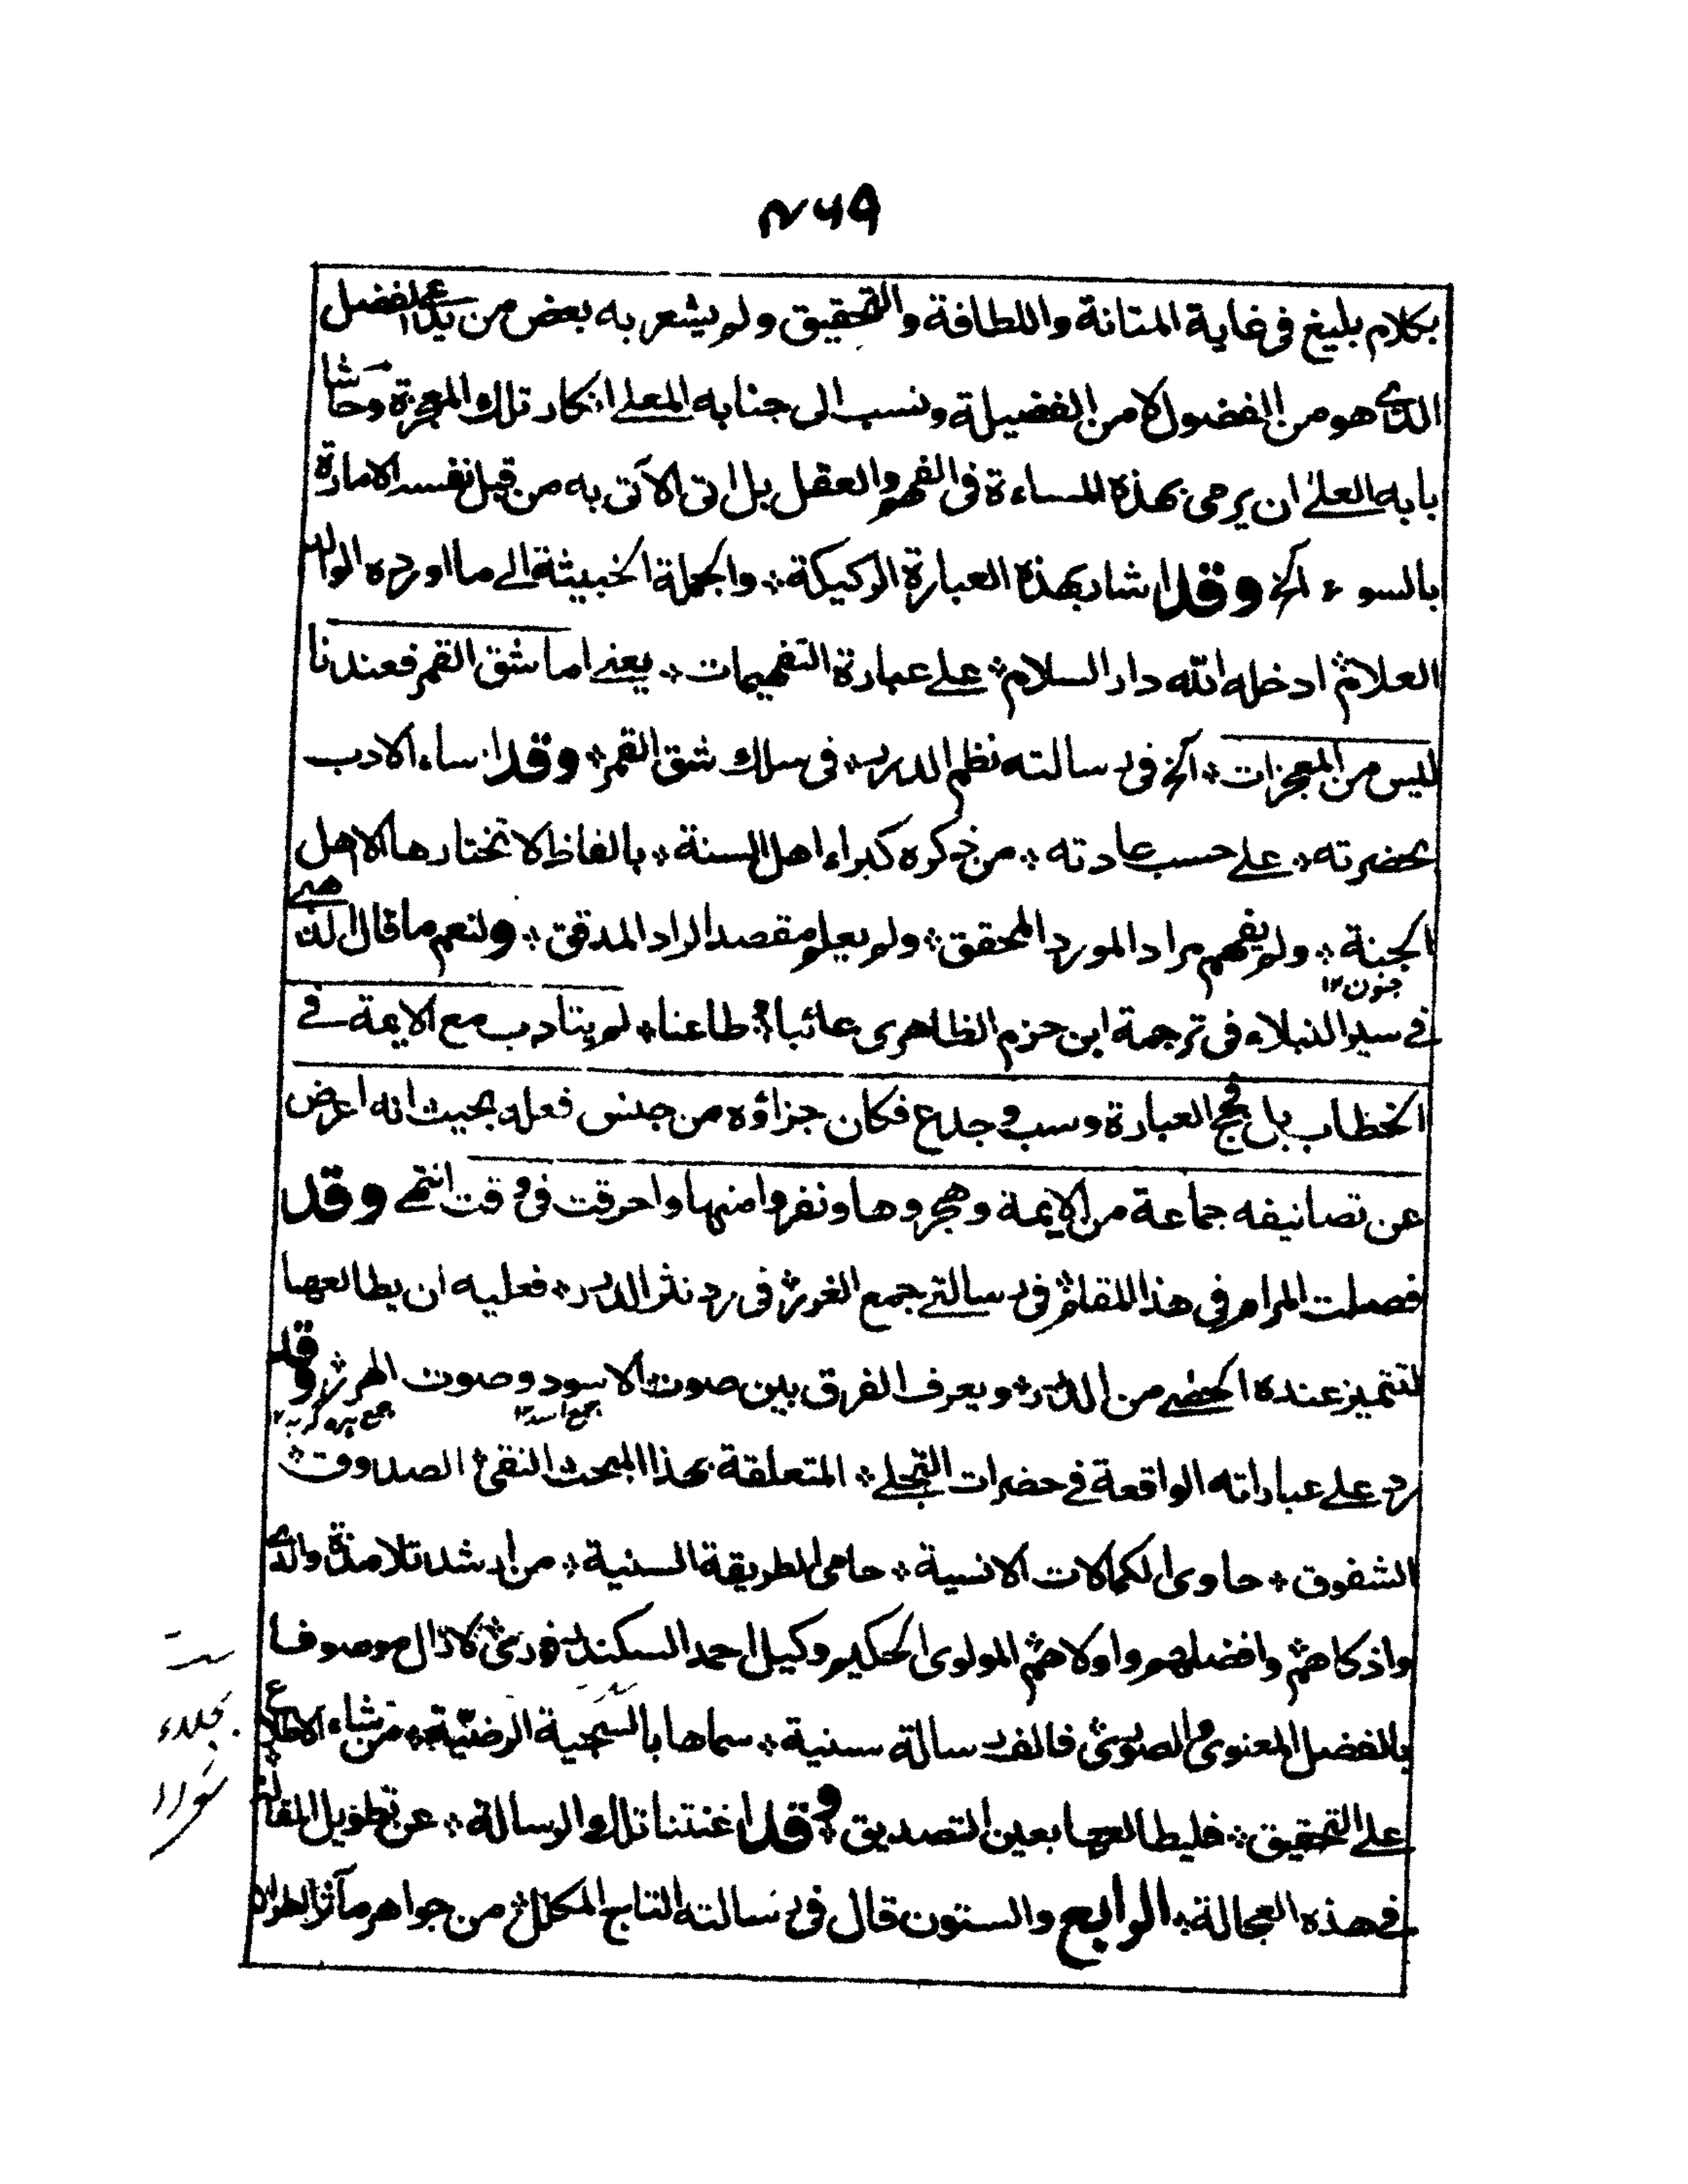 ۴۶۹
بكلام بليغ فى غاية المتانة واللطافة والتحقيق ولم يشعر به بعض من يدعى الفضل
الذى هو من الفضول لا من الفضيلة ونسب الى جنابه المعلى انكار تلك المعجزة وحاشا
بابه العلى ان يرمى بهذه المساءة فى الفهم والعقل بل اتى الآتى به من قبل نفسه الامارة
بالسوء الخ وقد اشار بهذه العبارة الركيكة ۞ والجملة الخبيثة الى ما اورده الوالد
العلام ۞ ادخله الله دار السلام ۞ على عبارة التفهيمات ۞ يعنى اما شق القمر فعندنا
ليس من المعجزات ۞ الخ فى رسالته نظم الدرر ۞ فى سلك شق القمر ۞ وقد اساء الادب
بحضرته ۞ على حسب عادته ۞ من ذكره كبراء اهل السنة ۞ بالفاظ لا تختارها الا اهل
الجنة ۞ ولم يفهم مراد المورد المحقق ۞ ولم يعلم مقصد الراد المدقق ۞ ولنعم ما قال الذهبى
جنون ١٢
فى سير النبلاء فى ترجمة ابن حزم الظاهرى عائبا ۞ وطاعنا ۞ لم يتادب مع الايمة فى
الخطاب بل فجج العبارة وسب وجدع فكان جزاؤه من جنس فعله بحيث انه اعرض
عن تصانيفه جماعة من الايمة وهجروها ونفروا منها واحرقت فى وقت انتهى وقد
فصلت المرام فى هذا المقام ۞ فى رسالتى جمع الغرر ۞ فى رد نثر الدرر ۞ فعليه ان يطالعها
لتتميز عنده الحصى من الدرر ۞ ويعرف الفرق بين صوت الاسود وصوت الهرر ۞ وقد
جمع اسد ١٢ جمع هره گربه ١٢
رد على عباراته الواقعة فى حضرات التجلى ۞ المتعلقة بهذا المبحث النقى ۞ الصدوق ۞
الشفوق ۞ حاوى الكمالات الانسية ۞ حامى الطريقة السنية ۞ من ارشد تلامذة والدى
واذكاهم ۞ وافضلهم واولاهم ۞ المولوى الحكيم وكيل احمد السكندرفورى ۞ لا زال موصوفا
بالفضل المعنوى والصورى ۞ فالف رسالة سنية ۞ سماها بالسجية الرضية ۞ من شاء الاطلاع
على التحقيق ۞ فليطالعها بعين التصديق ۞ وقد اغنتنا تلك الرسالة ۞ عن تطويل المقالة ۞
فى هذه العجالة ۞ الرابع والستون قال فى رسالته التاج المكلل ۞ من جواهر مآثر الطراز